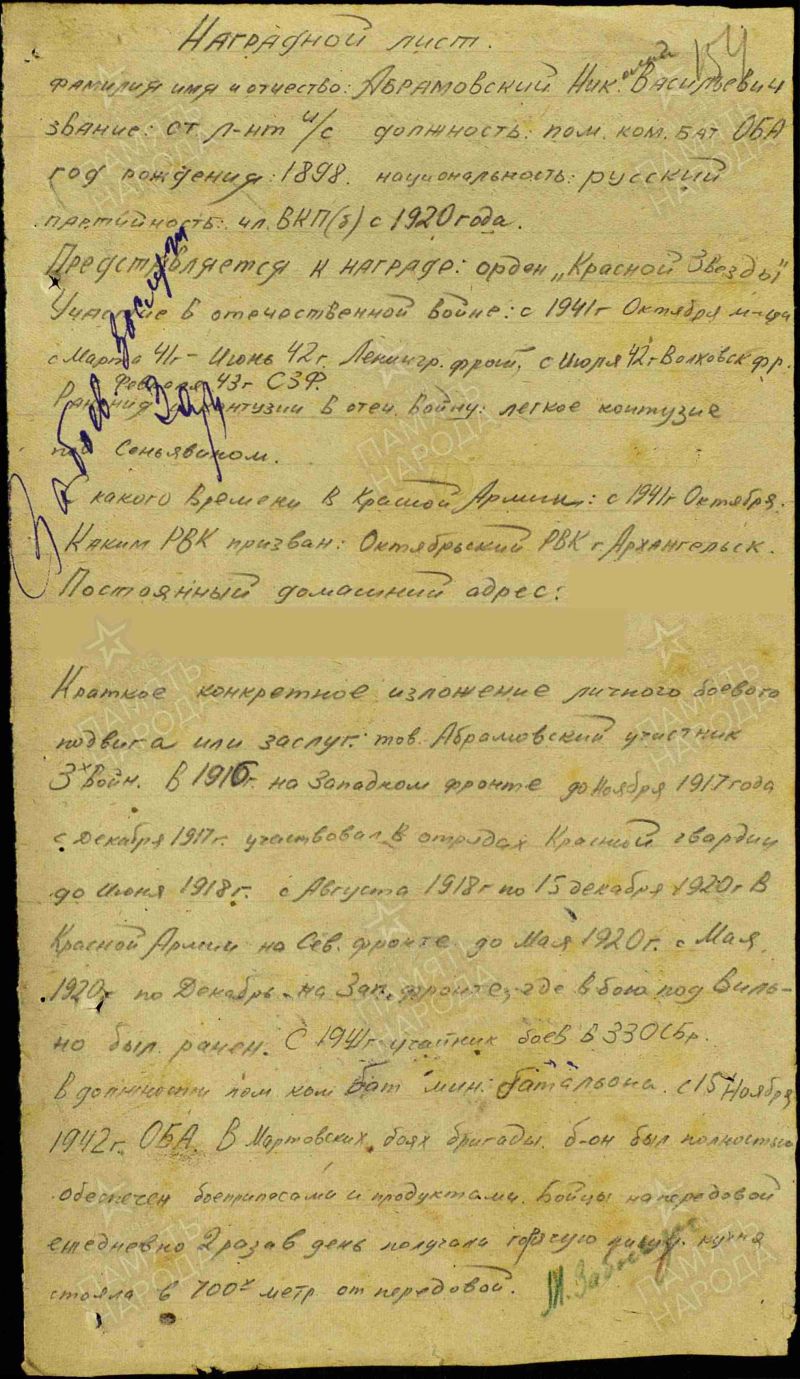 154
Наградной лист.
Фамилия имя и отчество: Абрамовский Николай Васильевич
звание: ст. л-нт и/с должность: пом. ком. бат ОБА
год рождения: 1898. национальность: русский
партийность: чл. ВКП(б) с 1920 года.
Представляется к награде: орден „Красной Звезды"
Участие в отечественной войне: с 1941г Октября м-ца
с Марта 41г – Июнь 42г. Ленингр. фронт, с Июля 42г Волховск фр.
Февраля 43г СЗФ.
Ранения контузии в отеч. войну: легкое контузие
под Сенявином.
С какого времени в Красной Армии: с 1941г Октября.
Каким РВК призван: Октябрьский РВК г Архангельск.
Постоянный домашний адрес:
За боев. заслуги
Краткое конкретное изложение личного боевого
подвига или заслуг: тов. Абрамовский участник
3х войн. В 1916г. на Западном фронте до Ноября 1917 года
с Декабря 1917г. участвовал в отрядах Красной гвардии
до Июня 1918г. с Августа 1918г по 15 декабря 1920г в
Красной Армии на Сев. фронте до Мая 1920г. с Мая
1920г по Декабрь на Зап. фронте, где в бою под Виль-
но был ранен. С 1941г участник боев в 33 ОСБр.
в должности пом ком бат мин. батальона. с 15 Ноября
1942г. ОБА. В Мартовских боях бригады. б-он был полностью
обеспечен боеприпасами и продуктами. Бойцы на передовой
ежедневно 2 раза в день получали горячую пищу. кухня
стояла в 700х метр от передовой.
М. За боев
ПАМЯТЬ НАРОДА